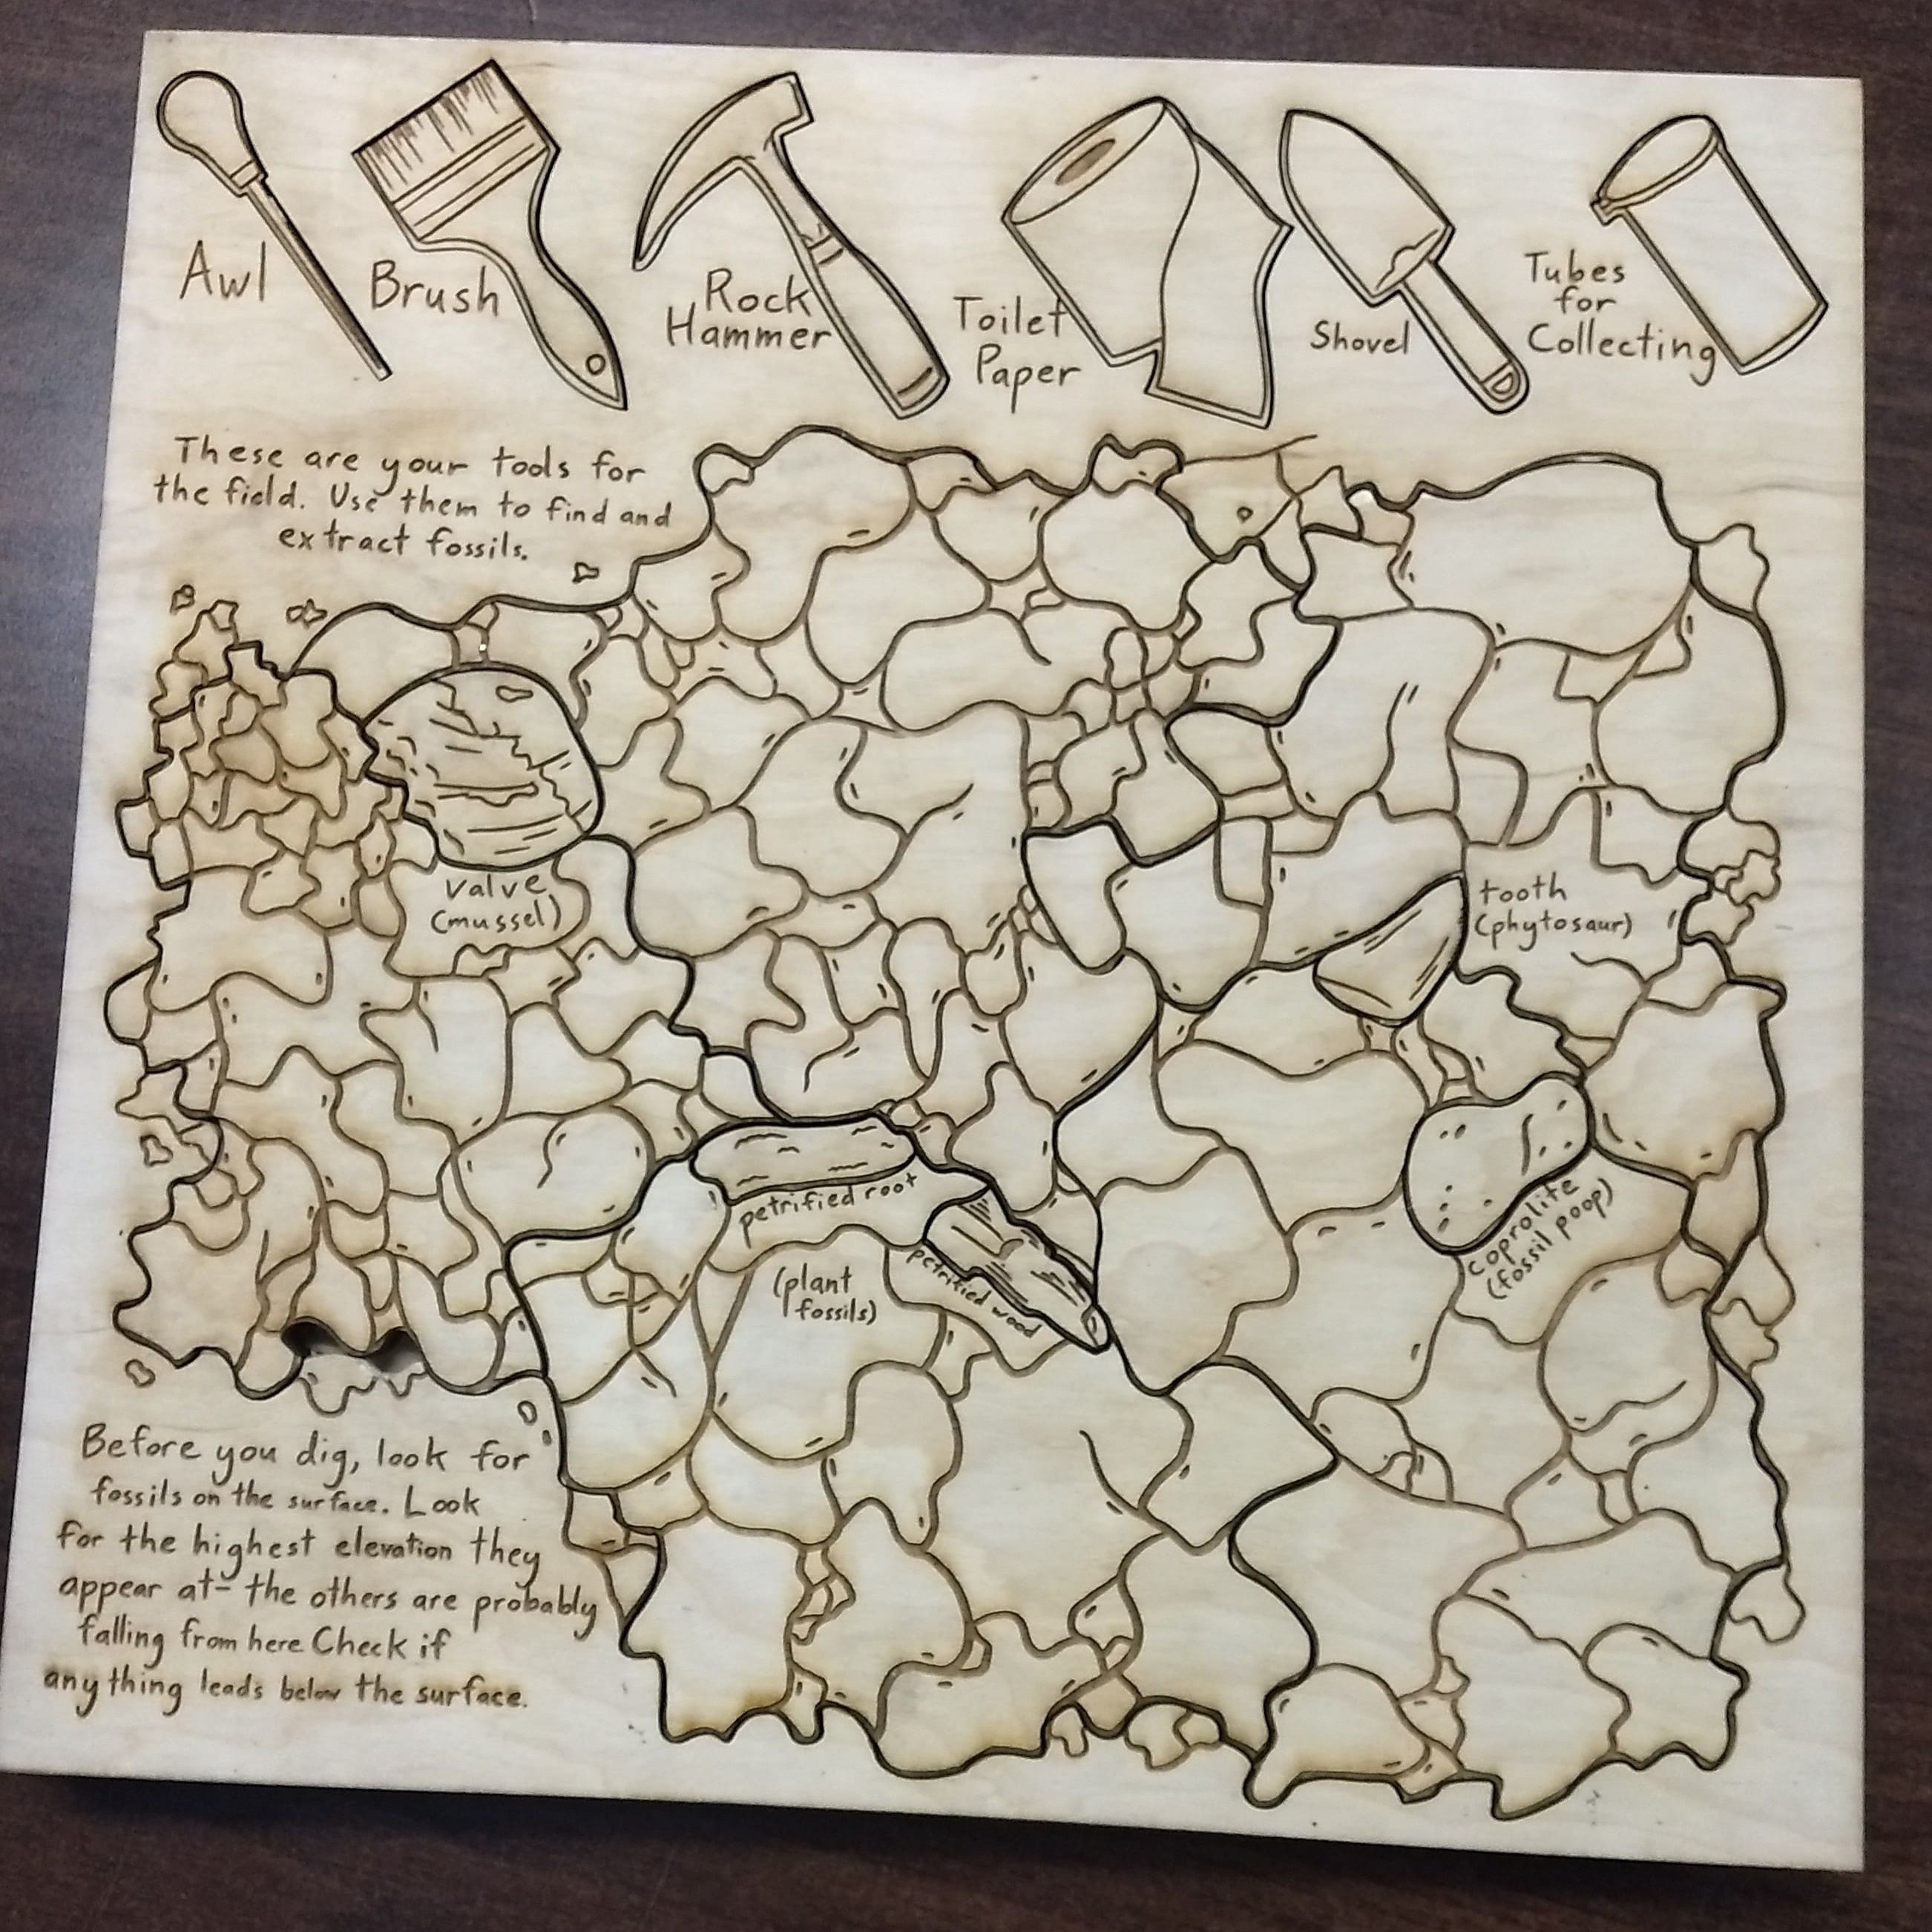 Awl
Brush
Rock
Hammer
Toilet
Paper
Shovel
Tubes
for
Collecting
These are your tools for
the field. Use them to find and
extract fossils.
valve
(mussel)
tooth
(phytosaur)
petrified root
petrified wood
(plant
fossils)
coprolite
(fossil poop)
Before you dig, look for
fossils on the surface. Look
for the highest elevation they
appear at- the others are probably
falling from here. Check if
anything leads below the surface.